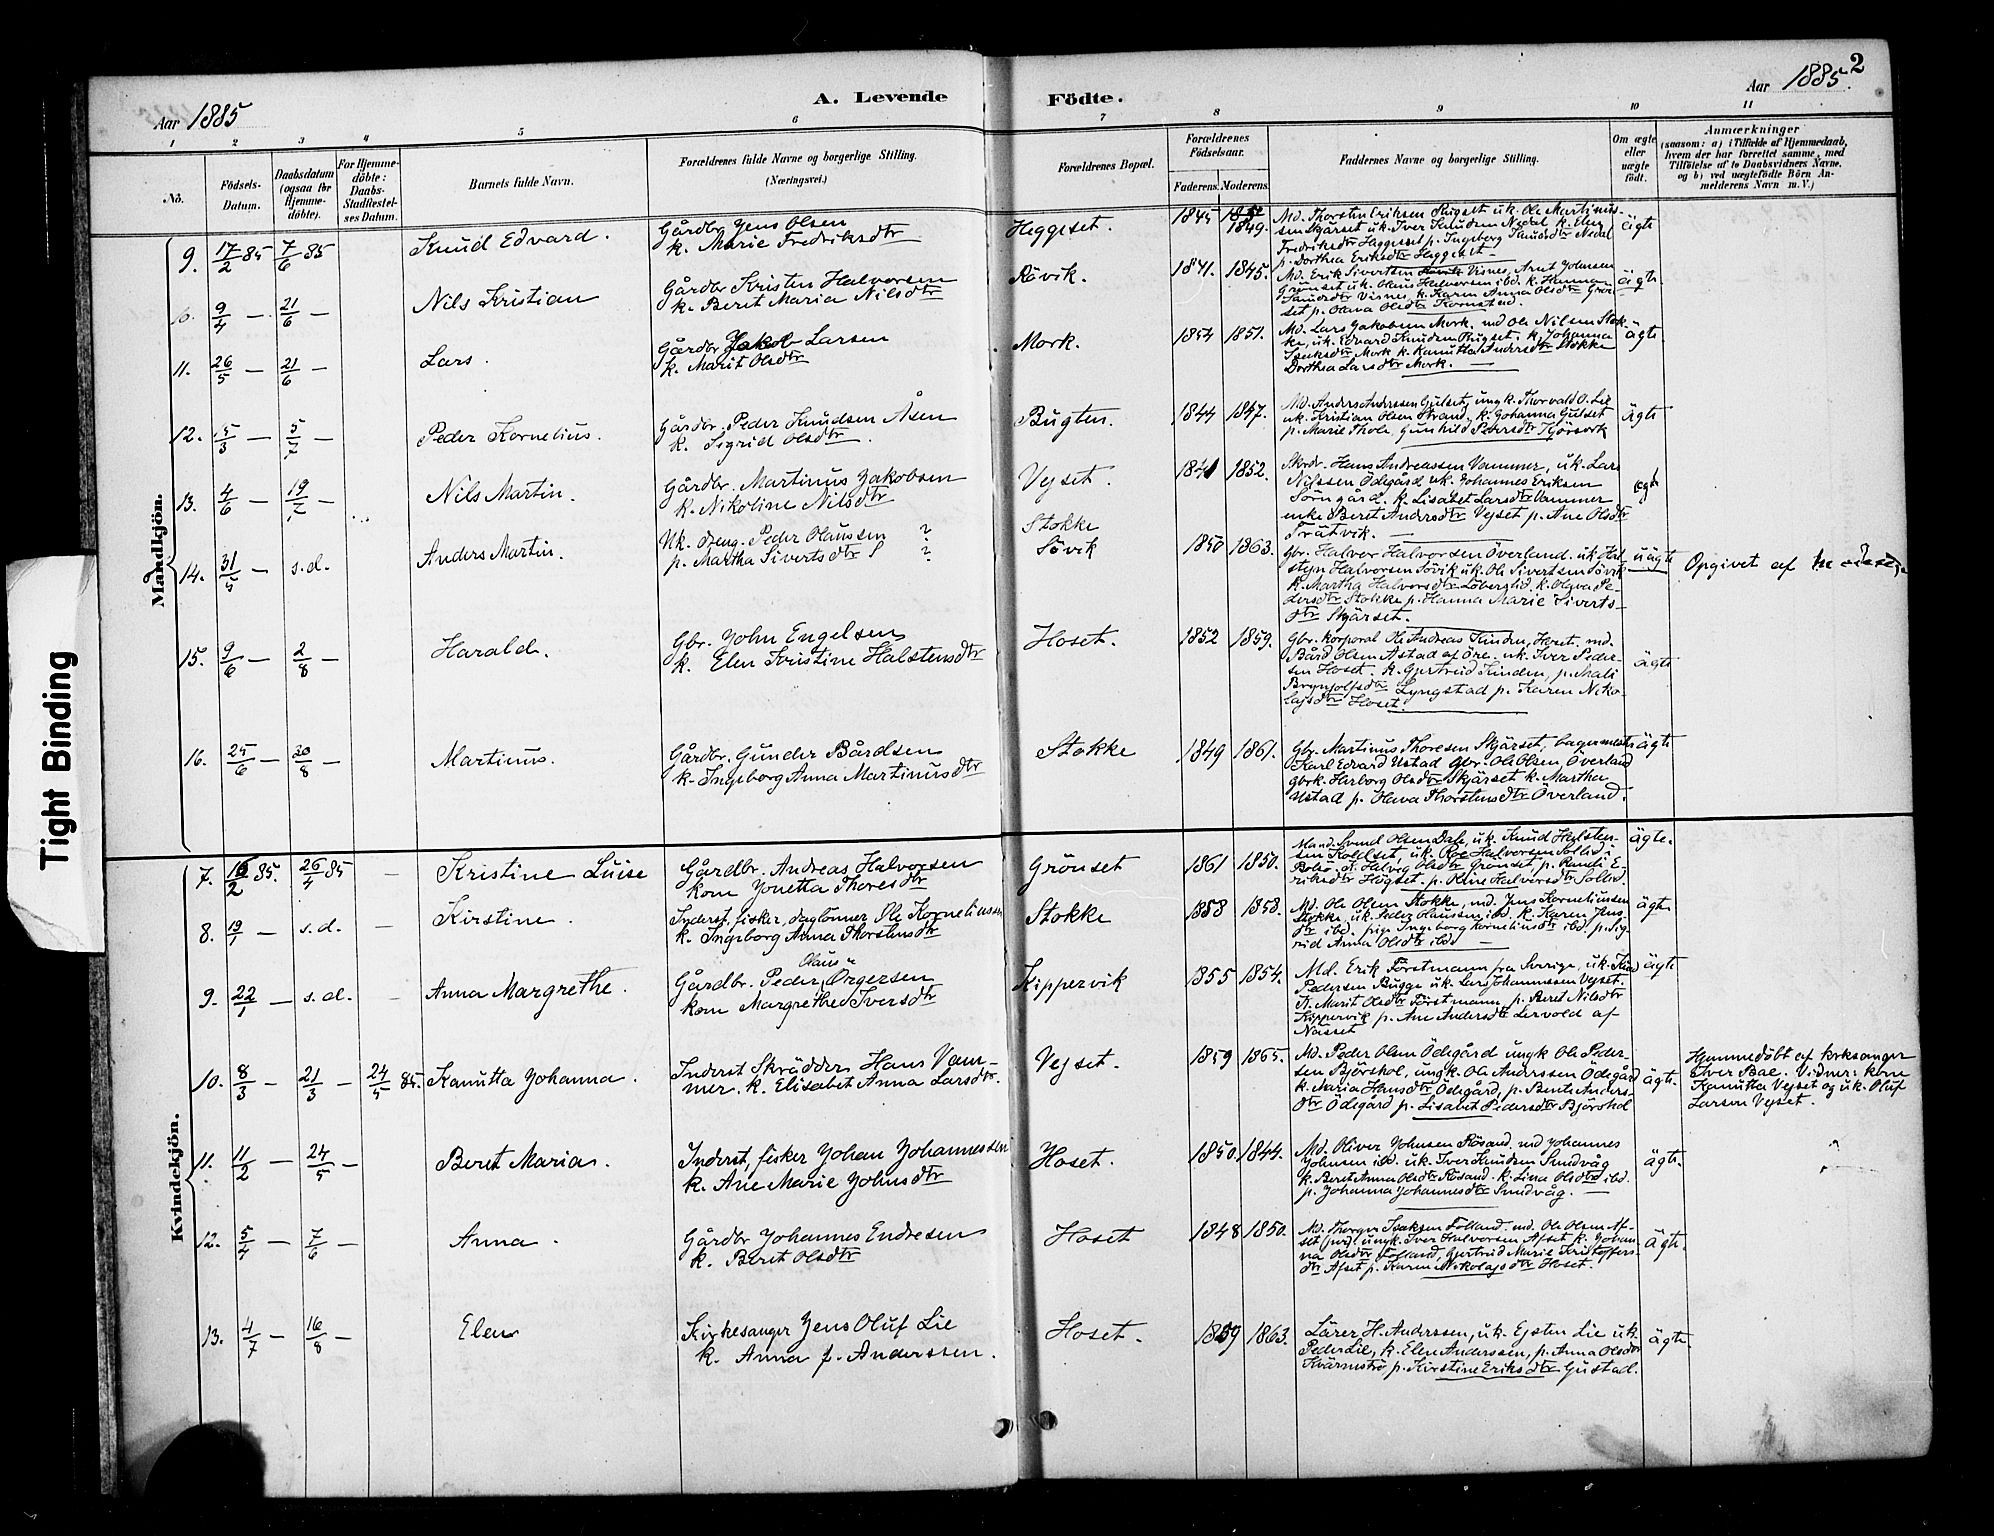 Tight Binding
Aar 1885
A. Levende Födte.
Aar 1885.
2
1 2 3 4 5 6 7 8 9 10 11
No.
Födsels-
Datum.
Daabsdatum
(ogsaa for
Hjemme-
döbte).
For Hjemme-
döbte:
Daabs-
Stadfæstel-
ses Datum.
Barnets fulde Navn.
Forældrenes fulde Navne og borgerlige Stilling.
(Næringsvei.)
Forældrenes Bopæl.
Forældrenes
Födselsaar.
Faderens. Moderens.
Faddernes Navne og borgerlige Stilling.
Om ægte
eller
uægte
født.
Anmærkninger
(saasom: a) i Tilfælde af Hjemmedaab,
hvem der har forrettet samme, med
Tilföielse af to Daabsvidners Navne,
og b) ved uægtefödte Börn An-
melderens Navn m. V.)
Mandkjön.
9. 17/2 85 7/6 85 Knud Edvard.
Gårdbr Jens Olsen
k. Marie Fredriksdtr
Heggset. 1845 1849.
Md. Thorsten Eriksen Rugset uk. Ole Martinus-
sen Skjärset uk. Iver Knudsen Nedal k. Elen
Fredriksdtr Heggeset p. Ingeborg Knudsdtr Nedal
p. Dorthea Eriksdtr Heggeset
ägte
10. 9/4 — 21/6 — Nils Kristian
Gårdbr Kristen Halvorsen
k. Berit Maria Nilsdtr
Rävik. 1841. 1845.
Md. Erik Sivertsen Visnes, Arnt Johnsen
Grönset uk. Olaus Halvorsen ibd. k. Hanna
Visnes, k. Karen Anna Olsdtr Grön-
set p. Olava Olsdtr Kornstad.
ägte
11. 26/5 — 21/6 — Lars.
Gårdbr Jakob Larsen
k. Marit Olsdtr
Mork. 1854 1851.
Md. Lars Jakobsen Mork, md Ole Nilsen Stok-
ke, uk. Edvard Knudsen Rugset. k. Johanna
Isaksdtr Mork k. Kanutta Andersdtr Stokke
Dorthea Larsdtr Mork. —
ägte
12. 15/3 — 5/7 — Peder Kornelius.
Gårdbr. Peder Knudsen Åsen
k. Sigrid Olsdtr.
Bugten. 1844 1847.
Md. Anders Andersen Gulset, ungk. Thorvald O. Lie
uk. Kristian Olsen Strand, k. Johanna Gulset
p. Marie Thole, Gunhild Pedersdtr
ägte
13. 4/6 — 19/7 — Nils Martin.
Gårdbr. Martinus Jakobsen
k. Nikoline Nilsdtr
Vejset. 1841 1852.
Skrdr. Hans Andreassen Vammer, uk. Lars
Nilssen Ödegård uk. Johannes Eriksen
Sörngård. k. Lisabet Larsdtr Vammer
enke Beret Andersdtr Vejset p. Ane Olsdtr
Trätvik. —
ägte
14. 31/5 — s.d. Anders Martin.
Uk. dreng. Peder Olaussen ?
p. Martha Sivertsdtr S ?
Stokke
Sövik 1850 1863.
Gbr. Halvor Halvorsen Överland. uk. Hal-
steyn Halvorsen Sövik uk. Ole Sivertsen Sövik
k. Martha Halvorsdtr Löberslid. k. Olava Pe-
dersdtr Stokke p. Hanna Marie Siverts-
dtr Skjärset.
uägte Opgivet af
15. 9/6 — 2/8 — Harald.
Gbr. John Engelsen
k. Elen Kristine Halstensdtr
Hoset. 1852 1859.
Gbr. korporal Ole Andreas Hinden, Herst. md.
Bård Olsen Astad af Öre. uk. Iver Peder-
sen Hoset. k. Gjertrud Hinden, p. Mali
Brynjolfsdtr Lyngstad p. Karen Niko-
lajsdtr Hoset.
ägte
16. 25/6 — 30/8 — Martinus.
Gårdbr. Gunder Bårdsen
k. Ingeborg Anna Martinusdtr
Stokke 1849 1861.
Gbr. Martinus Thoresen Skjärset, bagermestr
Karl Edvard Ustad gbr. Ole Olsen Överland
gbrk. Herborg Olsdtr Skjärset k. Martha
Ustad p. Olava Thorstensdtr Överland.
ägte
Kvindekjön.
7. 16/2 85. 26/4 85 — Kristine Luise
Gårdbr. Andreas Halvorsen
kom Jonetta Thoresdtr
Grönset 1861 1850.
Mand Svend Olsen Dale, uk. Knud Halsten-
sen Kollset, uk. Roe Halvorsen Sollid
Bolsö. k. Halvig Olsdtr Grönset, p. Randi E-
riksdtr Högset. p. Oline Halvorsdtr Sollid.
ägte.
8. 19/1 — s.d. — Kirstine.
Inderst, fisker, daglönner Ole Kornelius-sen
k. Ingeborg Anna Thorstensdtr
Stokke 1858 1858.
Md. Ole Olsen Stokke, md. Jens Korneliussen
Stokke, uk. Peder Olaussen ibd. k. Karen Jens-
dtr ibd. pige Ingeborg Korneliusdtr ibd. p. Sig-
rid Anna Olsdtr ibd —
ägte
9. 22/1 — s.d. — Anna Margrethe.
Olaus"
Gårdbr. Peder Örgersen
kom Margrethe Iversdtr
Kippervik 1855 1854.
Md. Erik Förstmann fra Sverige, uk. Knud
Pedersen Bugge uk. Lars Johannessen Vejset.
k. Marit Olsdtr Förstmann, p. Beret Nilsdtr
Kippervik p. Ane Andersdtr Lervold af
Nässet
ägte
10. 8/3 — 21/3 — 24/5 85. Kanutta Johanna.
Inderst Skrädder Hans Vam-
mer. k. Elisabet Anna Larsdtr.
Vejset. 1859 1865.
Md. Peder Olsen Ödegård ungk Ole Peder-
sen Björshol, ungk. Ole Anderssen Ödegård
k. Maria Hansdtr Ödegård, p. Bente Anders-
dtr Ödegård p. Lisabet Pedersdtr Björshol
ägte.
Hjemmedöbt af kirksanger
Elver Bae. Vidner: kone
Kanutta Vejset og uk. Oluf
Larsen Vejset.
11. 11/2 — 24/5 — Beret Maria.
Inderst, fisker Johan Johannessen
k. Ane Marie Johnsdtr
Hoset. 1850 1844.
Md. Oliver Johnsen Rösand, md Johannes
Johnsen ibd. uk. Iver Knudsen Sundvåg
k. Berit Anna Olsdtr Rösand. k. Lina Olsdtr ibd.
p. Johanna Johannesdtr Sundvåg. —
ägte.
12. 5/4 — 7/6 — Anna.
Gårdbr Johannes Endresen
k. Beret Olsdtr
Hoset 1848 1850.
Md. Thorger Isaksen Folland. md. Ole Olsen Af-
set ungk. Iver Halvorsen Afset k. Johan-
na Olsdtr Folland, Gjertrud Marie Kristoffers-
dtr Afset p. Karen Nikolajsdtr Hoset.
ägte.
13. 4/7 — 16/8 — Elen
Kirkesanger Jens Oluf Lie
k. Anna f. Anderssen.
Hoset. 1859 1863.
Lärer H. Anderssen, uk. Ejsten Lie uk.
Peder Lie, k. Elen Anderssen, p. Anna Olsdtr
Kvärnströ, p. Kirstine Eriksdtr Gustad.
ägte.